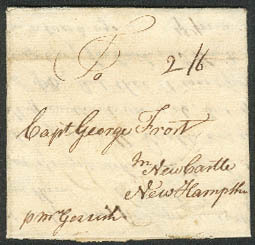 To 2/6
Capt George Frost
In New Castle
New Hampshr
p mr Gerrish